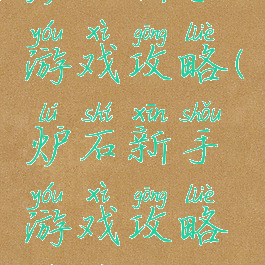 yóu xì gōng lüè
游戏攻略(
lú shí xīn shǒu
炉石新手
yóu xì gōng lüè
游戏攻略